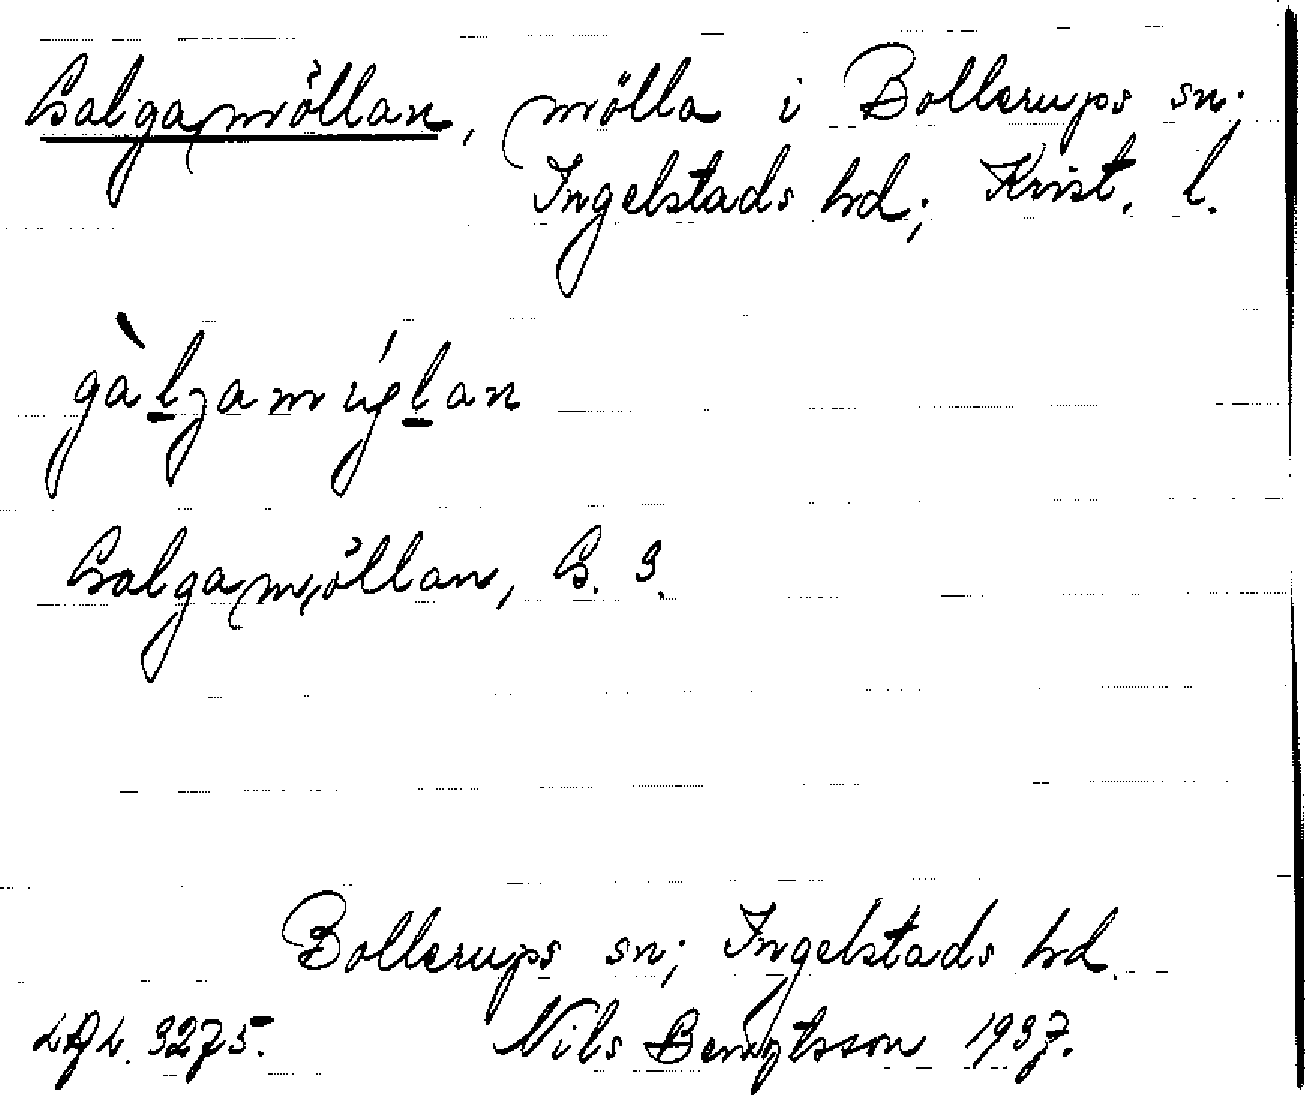 Galgamöllan, mölla i Bollerups sn;
Ingelstads hd; Krist. l.
Galgamöllan, G. 3.
Bollerups sn; Ingelstads hd.
3275. Nils Bengtsson 1937.